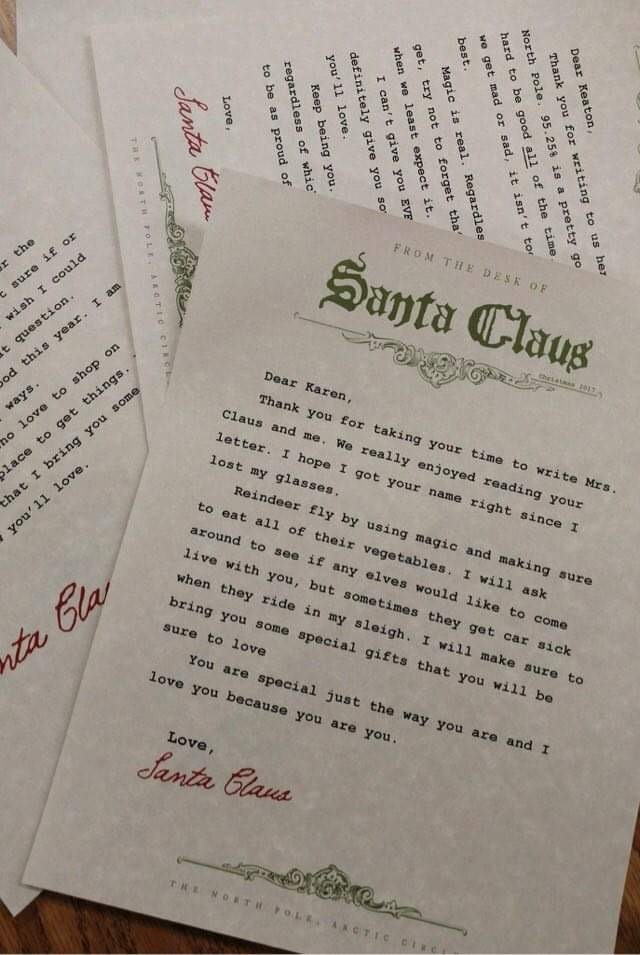 FROM THE DESK OF
Santa Claus
Christmas 2017
Dear Karen,
Thank you for taking your time to write Mrs.
Claus and me. We really enjoyed reading your
letter. I hope I got your name right since I
lost my glasses.
Reindeer fly by using magic and making sure
to eat all of their vegetables. I will ask
around to see if any elves would like to come
live with you, but sometimes they get car sick
when they ride in my sleigh. I will make sure to
bring you some special gifts that you will be
sure to love
You are special just the way you are and I
love you because you are you.
Love,
Santa Claus
THE NORTH POLE, ARCTIC CIRCL
Dear Keaton,
Thank you for writing to us her
North Pole. 95.25% is a pretty go
hard to be good all of the time
we get mad or sad, it isn't to
best.
Magic is real. Regardles
get, try not to forget tha
when we least expect it.
I can't give you EVE
definitely give you so
you'll love.
Keep being you.
regardless of whic
to be as proud of
Love,
Santa Clau
THE NORTH POLE, ARCTIC CIRCL
r the
t sure if or
wish I could
at question.
ood this year. I am
ways.
ho love to shop on
place to get things.
that I bring you some
you'll love.
nta Cla